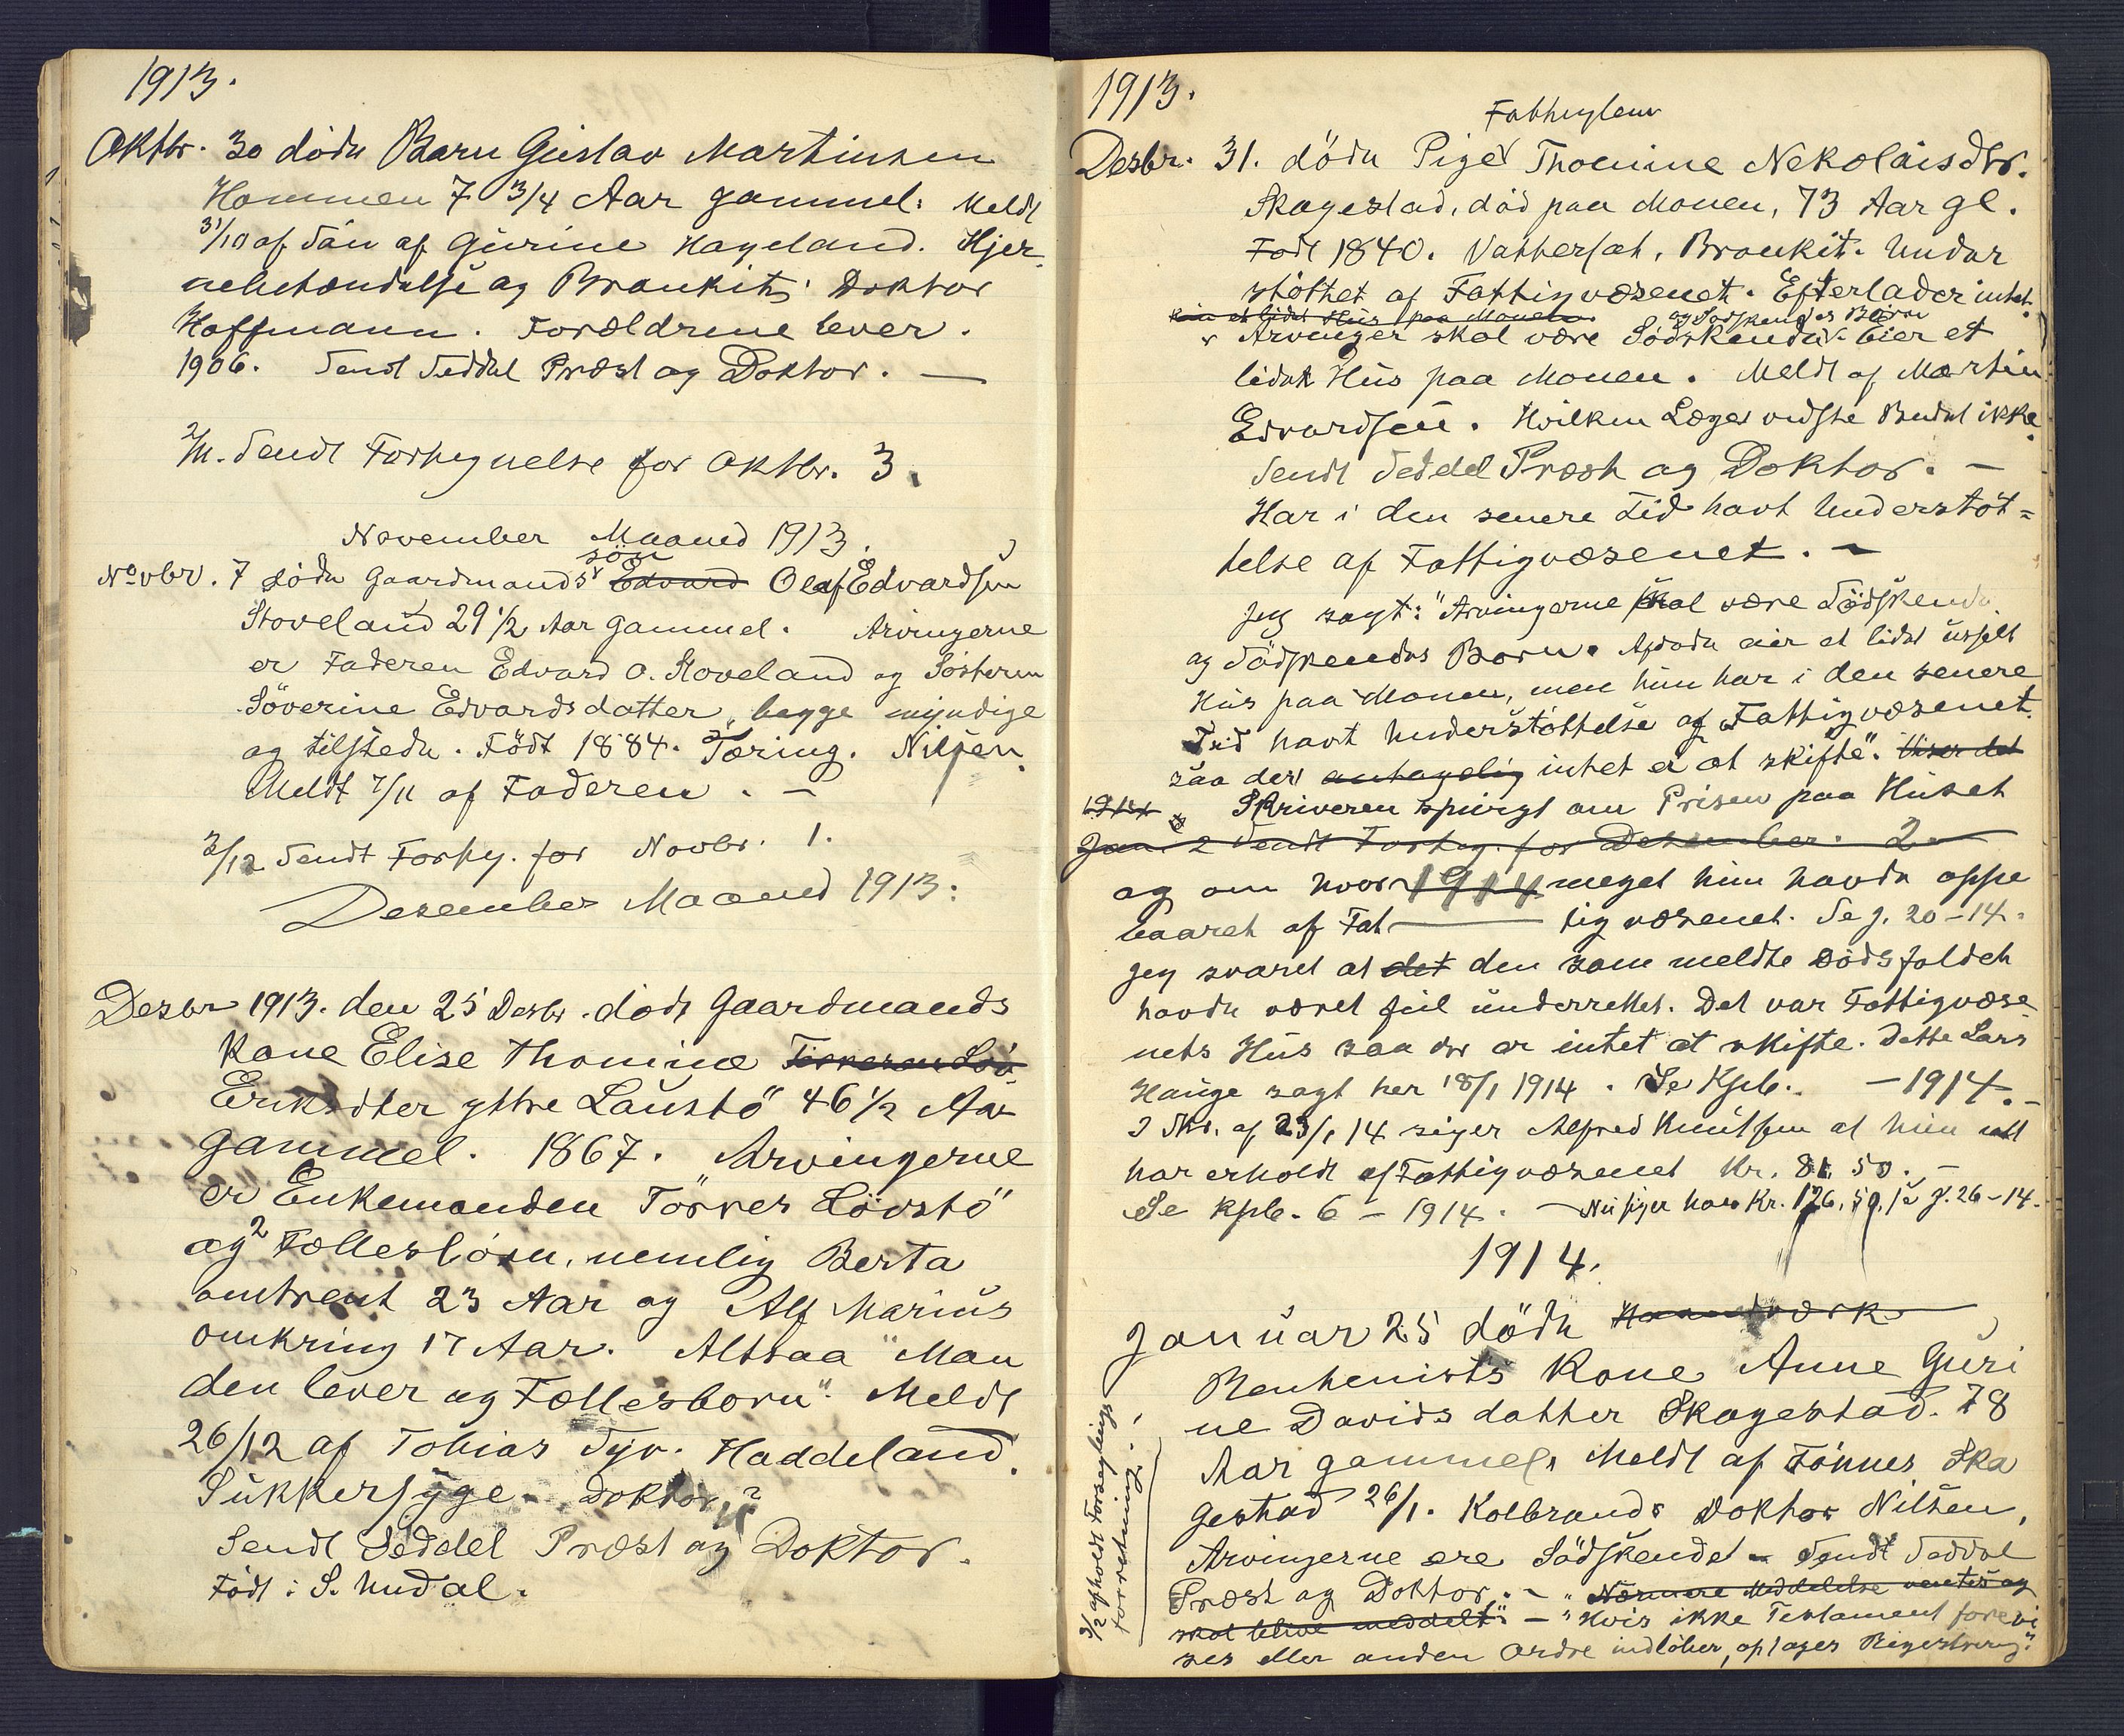 1913.
Oktbr. 30 döde Barn Gustav Martinsen
Hommen 7 3/4 Aar gammel. Meldt
31/10 af Søn af Gurine Hageland. Hjer-
nebetændelse og Bronkit, Doktor
Hoffmann. Forældrene lever.
1906. Sendt Seddel Præst og Doktor. —
2/11. Sendt Fortegnelse for Oktbr. 3.
November Maaned 1913.
Novbr. 7 döde Gaardmands sön Edvard Olaf Edvardsen
Stoveland 29 1/2 Aar gammel. Arvingerne
er Faderen Edvard O. Stoveland og Sösteren
Söverine Edvardsdatter, begge myndige
og tilstede. Födt 1884. Tæring. Nilsen.
Meldt 7/11 af Faderen. —
2/12 Sendt Forteg. for Novbr. 1.
Desember Maaned 1913.
Desbr 1913. den 25 Desbr. döde Gaardmands
Kone Elise Thomine
Eriksdter ytre Laustö 46 1/2 Aar
gammel. 1867. Arvingerne
er Enkemanden Törres Lövstö
og 2 Fællesbörn, nemlig Berta
omtrent 23 Aar og Alf Marius
omkring 17 Aar. Altsaa "Man
den lever og Fællesbörn". Meldt
26/12 af Tobias Syv. Haddeland.
Sukkersyge. Doktor ?
Sendt Seddel Præst og Doktor.
Födt i S. Undal.
1913.
Fattiglem
Desbr. 31. döde Pige Thomine Nekolaisdtr.
Skagestad, död paa Monen, 73 Aar gl.
Född 1840. Vattersot, Bronkit. Under
stöttet af Fattigvæsenet. Efterlader intet.
et lidet Hus paa Monen. og Södskendes Börn
Arvinger skal være Södskende. Eier et
lidet Hus paa Monen. Meldt af Martin
Edvardsen. Hvilken Læge vidste Budet ikke.
Sendt Seddel Præst og Doktor. —
Har i den senere Tid havt Understöt=
telse af Fattigvæsenet. —
Jeg sagt: "Arvingerne skal være Södskende
og Södskendes Börn. Afdöde eier et lidet usselt
Hus paa Monen, men hun har i den senere
Tid havt Understöttelse af Fattigvæsenet.
saa der antagelig intet er at skifte".
1914 Skriveren spurgt om Prisen paa Huset
Jan. 2 Sendt Forteg. for Desember. 2
og om hvor 1914 meget hun havde oppe
baaret af Fat — tigvæsenet. Se J. 20-14.
Jeg svaret at det den som meldte Dödsfaldet
havde været feil underrettet. Det var Fattigvæse
nets Hus saa der er intet at skifte. Dette Lars
Hauge sagt her 18/1 1914. Se Kpb. — 1914. —
I Skr. af 23/1 14 siger Alfred Knutsen at hun
har erholdt af Fattigvæsenet Kr. 81.50. —
Se Kpb. 6 - 1914. — Nu siger han Kr. 126,50, se J. 26-14.
1914.
Januar 25 döde
Rentenists Kone Anne Guri
ne Davidsdatter Skagestad. 78
Aar gammel, Meldt af Tönnes Ska
gestad 26/1. Kolbrand. Doktor Nilsen.
Arvingerne ere Södskende — Sendt Seddel
Præst og Doktor. — "Nærmere Meddelelse ventes og
skal blive meddelt". — "Hvis ikke Testament forevi
ses eller anden Ordre indlöber, optages Registrering".
3/2 afholdt Forseglings
forretning. —